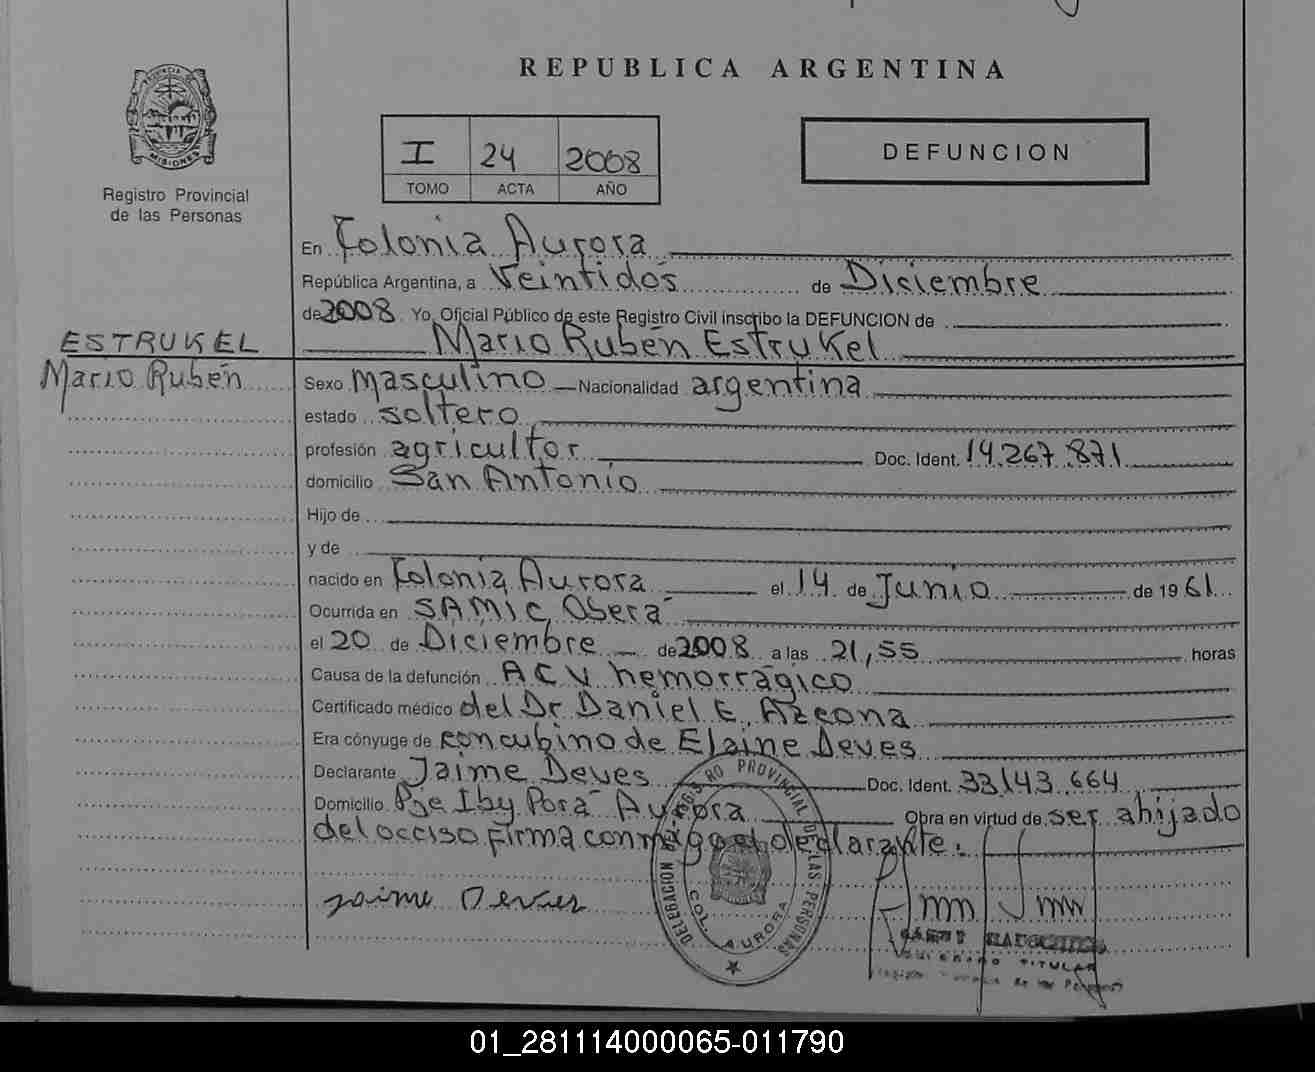 REPUBLICA ARGENTINA
PROVINCIA DE
MISIONES
Registro Provincial
de las Personas
I 24 2008
TOMO ACTA AÑO
DEFUNCION
En Colonia Aurora
República Argentina, a Veintidós de Diciembre
de 2008 Yo, Oficial Público de este Registro Civil inscribo la DEFUNCION de
ESTRUKEL
Mario Rubén Estrukel
Mario Rubén
Sexo masculino Nacionalidad argentina
estado soltero
profesión agricultor Doc. Ident. 14.267.871
domicilio San Antonio
Hijo de
y de
nacido en Colonia Aurora el 14 de Junio de 1961
Ocurrida en SAMIC Oberá
el 20 de Diciembre de 2008 a las 21,55 horas
Causa de la defunción ACV hemorrágico
Certificado médico del Dr Daniel E. Azcona
Era cónyuge de concubino de Elaine Deves
Declarante Jaime Deves Doc. Ident. 33.143.664
Domicilio Pje Iby Porá Aurora Obra en virtud de ser ahijado
del occiso firma conmigo el declarante.
Jaime Deves
DELEGACION REGISTRO PROVINCIAL DE LAS PERSONAS
COL. AURORA
TITULAR
de las Personas
01_281114000065-011790